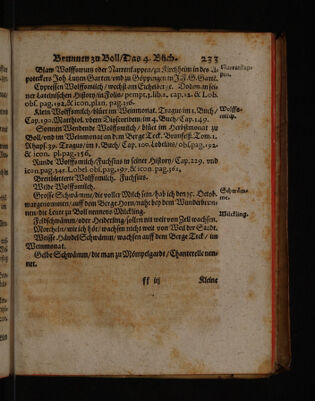 Brunnen zu Boll / Das 4. Buch. 233
Blaw Wolffswurtz oder Narrenkappen / zu Kirchheim in des A-
poteckers Joh Lutzen Garten / und zu Göppingen in J. J. G. Gart.
Narrenkap-
pen.
Cypressen Wolffsmilch / wechst am Eichelber
seiner Lateinischen History in Folio / pempt. 3. lib. 2. cap. 12. & Lob.
obs. pag. 192, & icon. plan. pag. 356.
Klein Wolffsmilch / blüet im Weinmonat. Tragus im 1. Buch /
Cap. 190. Matthiol. vbern Dioscoridem / im 4. Buch / Cap. 149.
Wolffs-
milch.
Sonnen Wendende Wolffsmilch / blüet im Herbstmonat zu
Boll / und im Weinmonat an dem Berge Teck. Brunfels. Tom. 1.
Rhaps. 39. Tragus / im 1. Buch / Cap. 100. Lobelius / obs. pag. 192.
& icon. pl. pag. 356,
Runde Wolffsmilch / Fuchsius in seiner History / Cap. 229, und
icon. pag. 341. Lobel. obs. pag. 197, & icon. pag. 361,
Breitblättert Wolffsmilch. Fuchsius.
Weide Wolffsmilch.
Grosse Schwämme / die voller Milch sein / hab ich den 15. Octob.
außgenommen / auff dem Berge Horn / nahe bey dem Wunderbrun-
nen / die Leute zu Boll nennens Mückling.
Schwäm-
me.
Mückling.
Feldschwämm / oder Heiderling / sollen nit weit von Zell wachsen.
Morcheln / wie ich hör / wachsen nicht weit von Weg der Stadt.
Weisse Händel Schwämm / wachsen auff dem Berge Teck / im
Weinmonat.
Gelbe Schwämm / die man zu Mömpelgardt / Chanterelle nen-
net.
ff iij Kleine